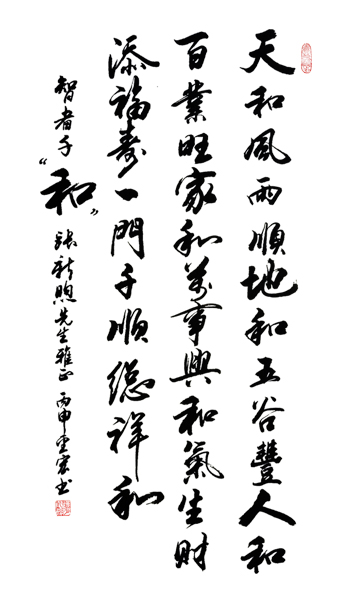 天和風雨順地和五谷豐人和
百業旺家和萬事興和氣生財
添福壽一門子順總祥和
智者子“和” 張新煦先生雅正 丙申 宏书